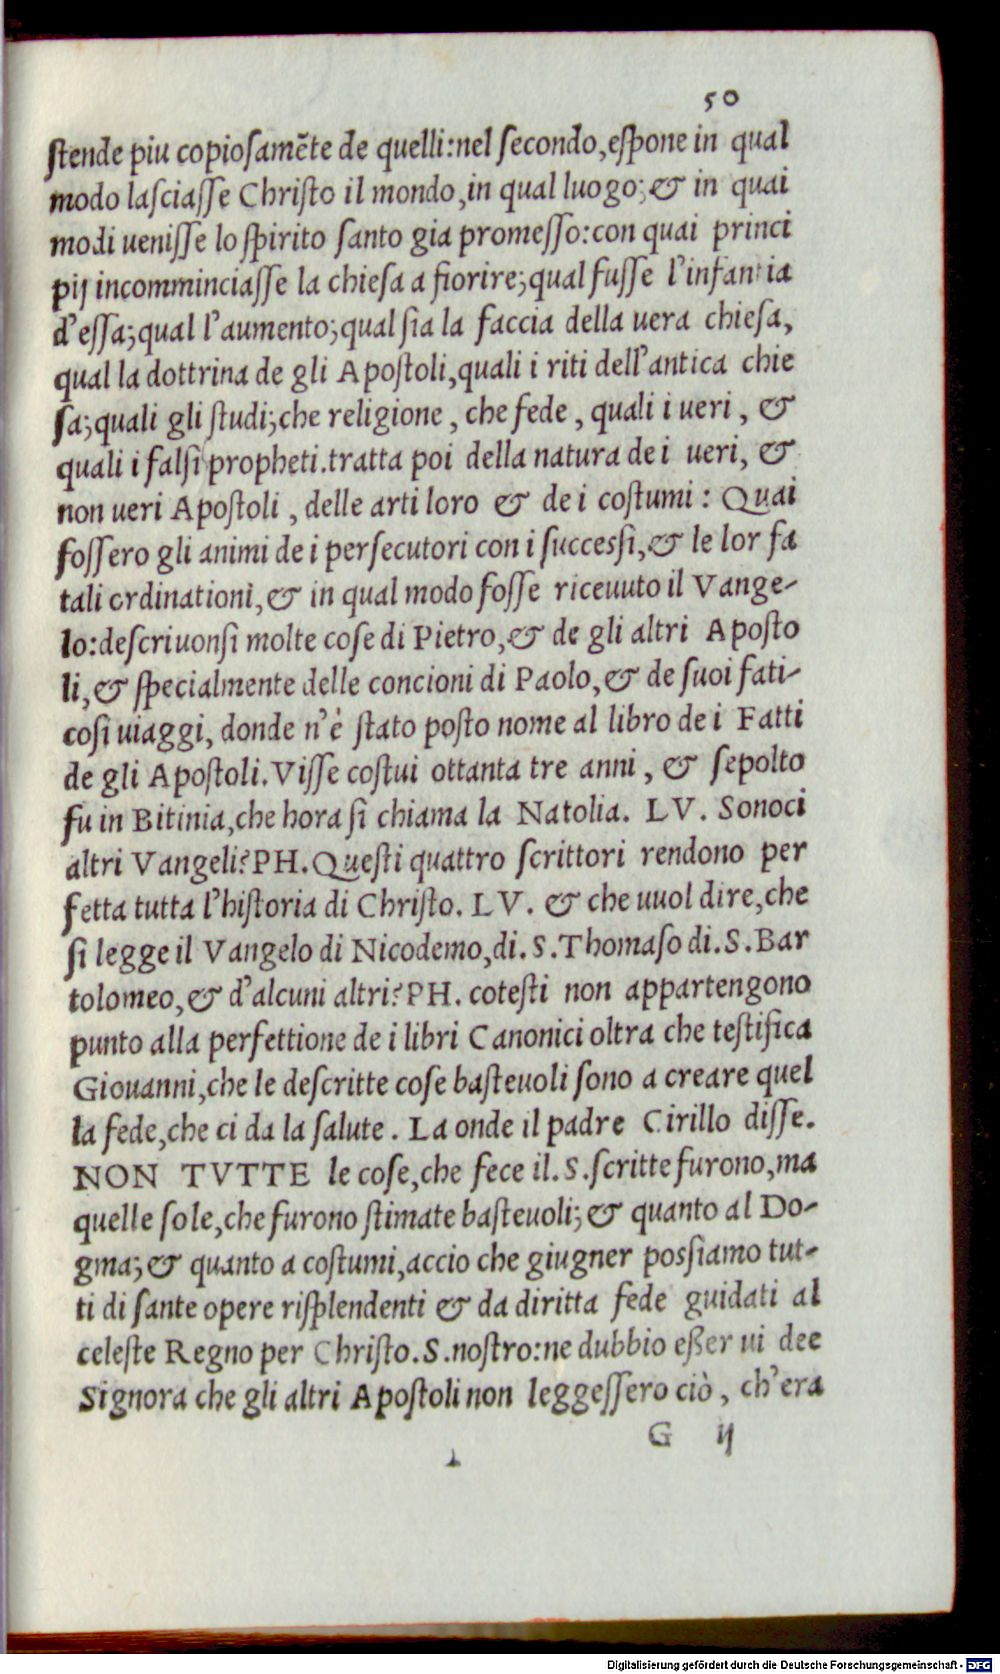 50
ſtende piu copioſamẽte de quelli:nel ſecondo,eſpone in qual
modo laſciaſſe Chriſto il mondo,in qual luogo;& in quai
modi ueniſſe lo ſpirito ſanto gia promeſſo:con quai princi
pij incomminciaſſe la chieſa a fiorire;qual fuſſe l'infantia
d'eſſa;qual l'aumento;qual ſia la faccia della uera chieſa,
qual la dottrina de gli Apoſtoli,quali i riti dell'antica chie
ſa;quali gli ſtudi;che religione, che fede, quali i ueri, &
quali i falſi propheti.tratta poi della natura de i ueri, &
non ueri Apoſtoli, delle arti loro & de i coſtumi: Quai
foſſero gli animi de i perſecutori con i ſucceſſi,& le lor fa
tali ordinationi,& in qual modo foſſe riceuuto il Vange-
lo:deſcriuonſi molte coſe di Pietro,& de gli altri Apoſto
li,& ſpecialmente delle concioni di Paolo,& de ſuoi fati-
coſi uiaggi, donde n'è ſtato poſto nome al libro de i Fatti
de gli Apoſtoli.Viſſe coſtui ottanta tre anni, & ſepolto
fu in Bitinia,che hora ſi chiama la Natolia. LV. Sonoci
altri Vangeli?PH.Queſti quattro ſcrittori rendono per
fetta tutta l'hiſtoria di Chriſto. LV. & che uuol dire,che
ſi legge il Vangelo di Nicodemo,di.S.Thomaſo di.S.Bar
tolomeo,& d'alcuni altri?PH. coteſti non appartengono
punto alla perfettione de i libri Canonici oltra che teſtifica
Giouanni,che le deſcritte coſe baſteuoli ſono a creare quel
la fede,che ci da la ſalute. La onde il padre Cirillo diſſe.
NON TVTTE le coſe,che fece il.S.ſcritte furono,ma
quelle ſole,che furono ſtimate baſteuoli;& quanto al Do-
gma;& quanto a coſtumi,accio che giugner poſſiamo tut-
ti di ſante opere riſplendenti & da diritta fede guidati al
celeſte Regno per Chriſto.S.noſtro:ne dubbio eßer ui dee
Signora che gli altri Apoſtoli non leggeſſero ciò, ch'era
G ij
Digitalisierung gefördert durch die Deutsche Forschungsgemeinschaft - DFG